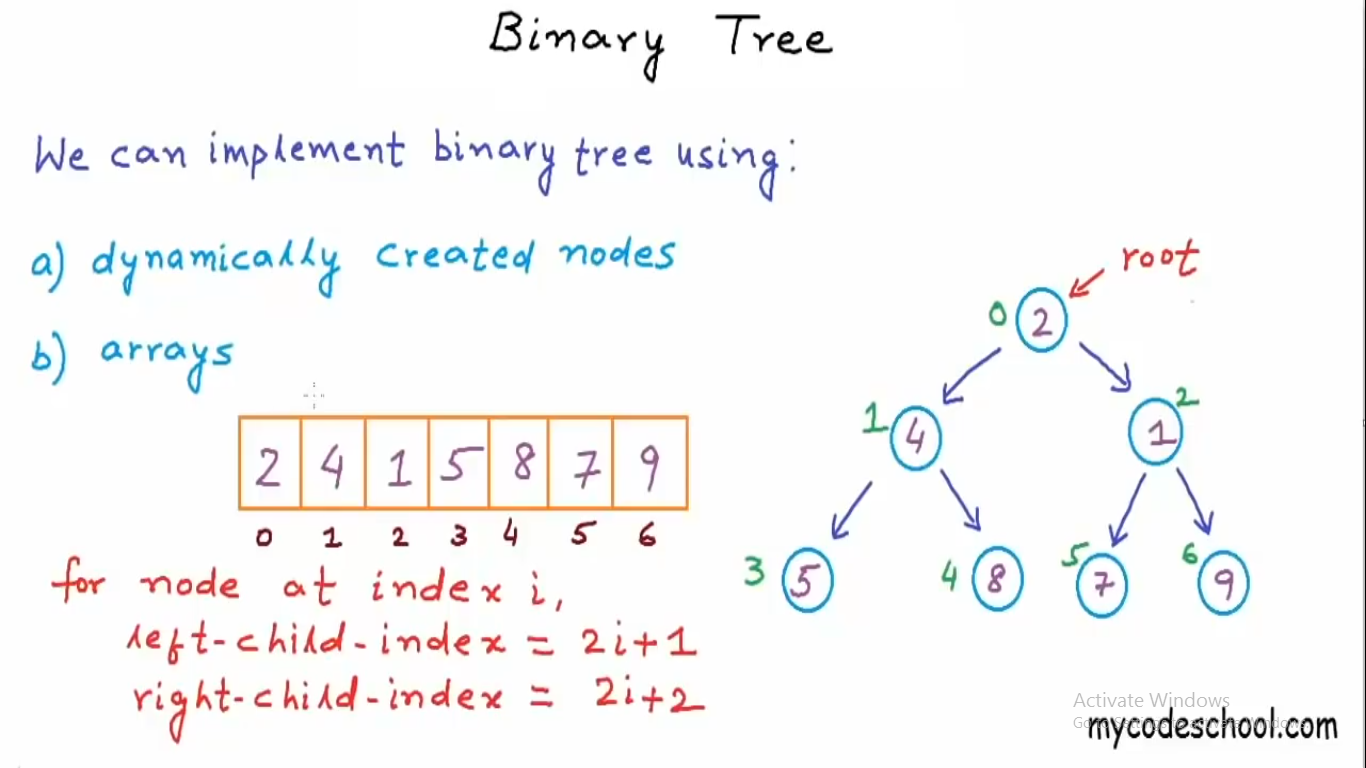 Binary Tree
We can implement binary tree using:
a) dynamically created nodes
b) arrays
2 4 1 5 8 7 9
0 1 2 3 4 5 6
for node at index i,
left-child-index = 2i+1
right-child-index = 2i+2
root
0 2
1 4
1 2
3 5
4 8
5 7
6 9
Activate Windows
Go to Settings to activate Windows.
mycodeschool.com